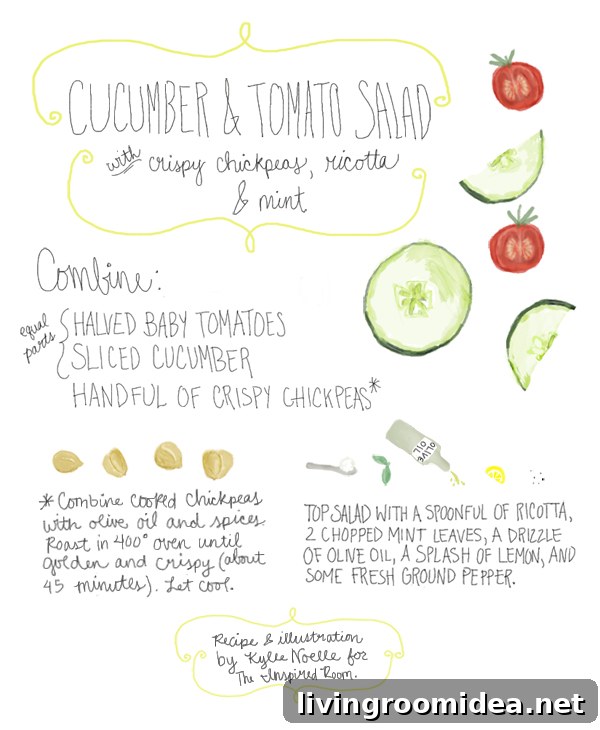 CUCUMBER & TOMATO SALAD
with crispy chickpeas, ricotta
& mint
Combine:
equal
parts
HALVED BABY TOMATOES
SLICED CUCUMBER
HANDFUL OF CRISPY CHICKPEAS*
OLIVE
OIL
*Combine cooked chickpeas
with olive oil and spices.
Roast in 400° oven until
golden and crispy (about
45 minutes). Let cool.
TOP SALAD WITH A SPOONFUL OF RICOTTA,
2 CHOPPED MINT LEAVES, A DRIZZLE
OF OLIVE OIL, A SPLASH OF LEMON, AND
SOME FRESH GROUND PEPPER.
Recipe & illustration
by Kylee Noelle for
The Inspired Room.
livingroomidea.net